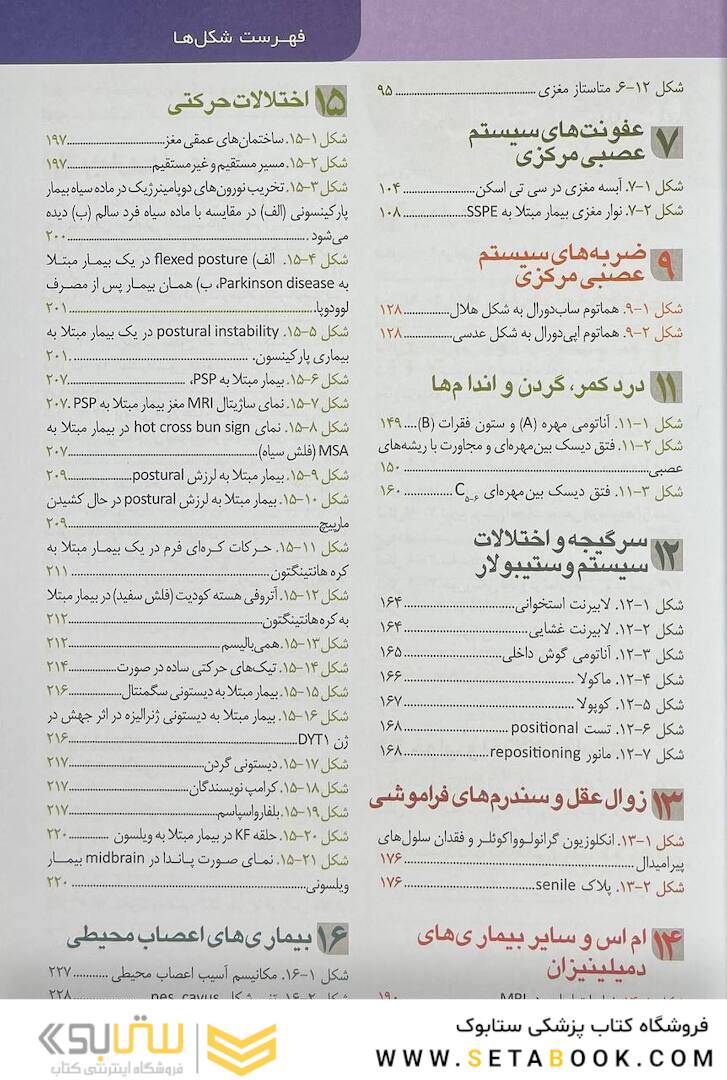 فهرست شکل‌ها
شکل ۱۲-۶. متاستاز مغزی ... ۹۵
۷ عفونت‌های سیستم
عصبی مرکزی
شکل ۱-۷. آبسه مغزی در سی تی اسکن ... ۱۰۴
شکل ۲-۷. نوار مغزی بیمار مبتلا به SSPE ... ۱۰۸
۹ ضربه‌های سیستم
عصبی مرکزی
شکل ۱-۹. هماتوم ساب‌دورال به شکل هلال ... ۱۲۸
شکل ۲-۹. هماتوم اپی‌دورال به شکل عدسی ... ۱۲۸
۱۱ درد کمر، گردن و اندام‌ها
شکل ۱-۱۱. آناتومی مهره (A) و ستون فقرات (B) ... ۱۴۹
شکل ۲-۱۱. فتق دیسک بین‌مهره‌ای و مجاورت با ریشه‌های
عصبی ... ۱۵۰
شکل ۳-۱۱. فتق دیسک بین‌مهره‌ای C۵-۶ ... ۱۶۰
۱۲ سرگیجه و اختلالات
سیستم وستیبولار
شکل ۱-۱۲. لابیرنت استخوانی ... ۱۶۴
شکل ۲-۱۲. لابیرنت غشایی ... ۱۶۴
شکل ۳-۱۲. آناتومی گوش داخلی ... ۱۶۵
شکل ۴-۱۲. ماکولا ... ۱۶۶
شکل ۵-۱۲. کوپولا ... ۱۶۷
شکل ۶-۱۲. تست positional ... ۱۶۸
شکل ۷-۱۲. مانور repositioning ... ۱۶۸
۱۳ زوال عقل و سندرم‌های فراموشی
شکل ۱-۱۳. انکلوزیون گرانولوواکوئلر و فقدان سلول‌های
پیرامیدال ... ۱۷۶
شکل ۲-۱۳. پلاک senile ... ۱۷۶
۱۴ ام اس و سایر بیماری‌های
دمیلینیزان
۱۵ اختلالات حرکتی
شکل ۱-۱۵. ساختمان‌های عمقی مغز ... ۱۹۷
شکل ۲-۱۵. مسیر مستقیم و غیرمستقیم ... ۱۹۷
شکل ۳-۱۵. تخریب نورون‌های دوپامینرژیک در ماده سیاه بیمار
پارکینسونی (الف) در مقایسه با ماده سیاه فرد سالم (ب) دیده
می‌شود ... ۲۰۰
شکل ۴-۱۵. الف) flexed posture در یک بیمار مبتلا
به Parkinson disease، ب) همان بیمار پس از مصرف
لوودوپا ... ۲۰۱
شکل ۵-۱۵. postural instability در یک بیمار مبتلا به
بیماری پارکینسون. ... ۲۰۱
شکل ۶-۱۵. بیمار مبتلا به PSP، ... ۲۰۷
شکل ۷-۱۵. نمای ساژیتال MRI مغز بیمار مبتلا به PSP . ۲۰۷
شکل ۸-۱۵. نمای hot cross bun sign در بیمار مبتلا به
MSA (فلش سیاه) ... ۲۰۷
شکل ۹-۱۵. بیمار مبتلا به لرزش postural ... ۲۰۹
شکل ۱۰-۱۵. بیمار مبتلا به لرزش postural در حال کشیدن
مارپیچ ... ۲۰۹
شکل ۱۱-۱۵. حرکات کره‌ای فرم در یک بیمار مبتلا به
کره هانتینگتون ... ۲۱۱
شکل ۱۲-۱۵. آتروفی هسته کودیت (فلش سفید) در بیمار مبتلا
به کره هانتینگتون ... ۲۱۲
شکل ۱۳-۱۵. همی‌بالیسم ... ۲۱۲
شکل ۱۴-۱۵. تیک‌های حرکتی ساده در صورت ... ۲۱۴
شکل ۱۵-۱۵. بیمار مبتلا به دیستونی سگمنتال ... ۲۱۶
شکل ۱۶-۱۵. بیمار مبتلا به دیستونی ژنرالیزه در اثر جهش در
ژن DYT۱ ... ۲۱۶
شکل ۱۷-۱۵. دیستونی گردن ... ۲۱۷
شکل ۱۸-۱۵. کرامپ نویسندگان ... ۲۱۷
شکل ۱۹-۱۵. بلفارواسپاسم ... ۲۱۷
شکل ۲۰-۱۵. حلقه KF در بیمار مبتلا به ویلسون ... ۲۲۰
شکل ۲۱-۱۵. نمای صورت پاندا در midbrain بیمار
ویلسونی ... ۲۲۰
۱۶ بیماری‌های اعصاب محیطی
شکل ۱-۱۶. مکانیسم آسیب اعصاب محیطی ... ۲۲۷
فروشگاه کتاب پزشکی ستابوک
WWW.SETABOOK.COM
ستابوک
فروشگاه اینترنتی کتاب